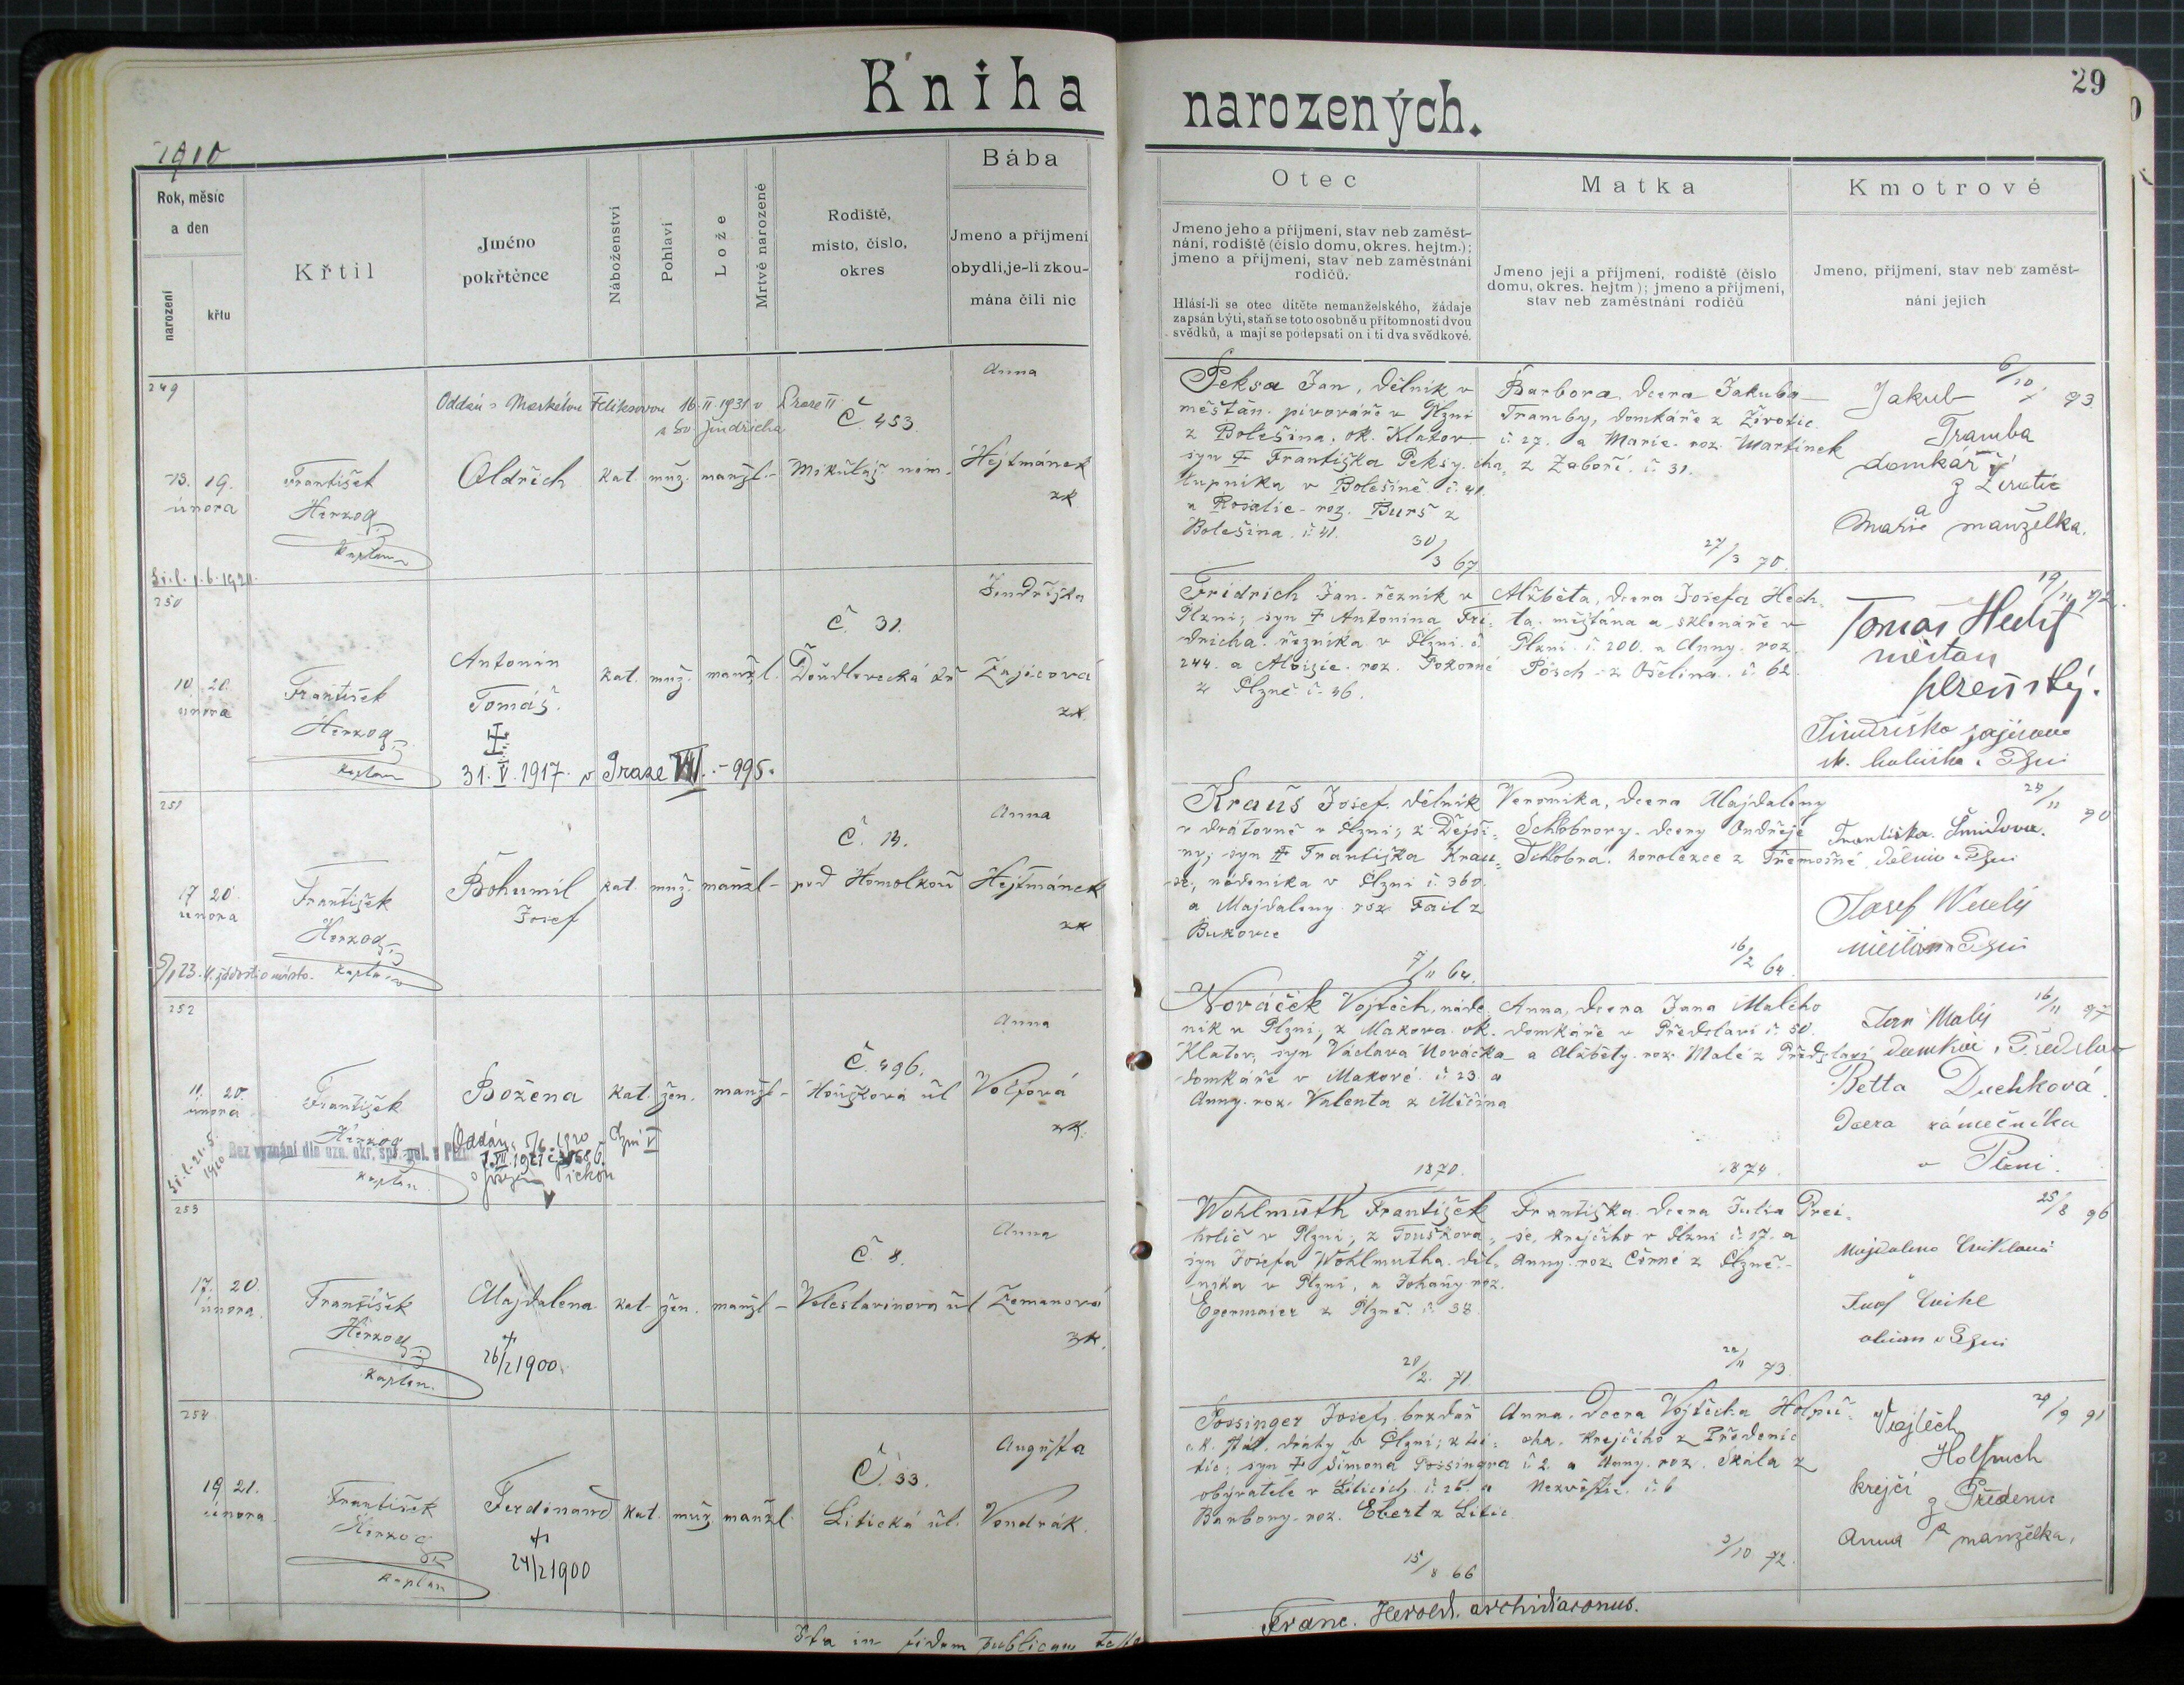 Kniha
narozených.
29
1910
Rok, měsíc
a den
narození
křtu
Křtil
Jméno
pokřtěnce
Náboženství
Pohlaví
Lože
Mrtvě narozené
Rodiště,
místo, číslo,
okres
Bába
Jmeno a příjmení
obydlí, je-li zkou-
mána čili nic
Otec
Jmeno jeho a příjmení, stav neb zaměst-
nání, rodiště (číslo domu, okres. hejtm.);
jmeno a příjmení, stav neb zaměstnání
rodičů.
Hlásí-li se otec dítěte nemanželského, žádaje
zapsán býti, staň se toto osobně u přítomnosti dvou
svědků, a mají se podepsati on i ti dva svědkové.
Matka
Jmeno její a příjmení, rodiště (číslo
domu, okres. hejtm); jmeno a příjmení,
stav neb zaměstnání rodičů
Kmotrové
Jmeno, příjmení, stav neb zaměst-
nání jejich
249
13. 19.
února
František
Herzog
kaplan
Oddán s Markétou Feliksovou 16.II.1931 v Praze II
u sv. Jindřicha
Oldřich
kat. muž. manžl.
Č. 453.
Mikulaš. nám.
Anna
Hejtmánek
zk
Peksa Jan, dělník v
měšťan. pivováře v Plzni
z Bolešina, ok. Klatov
syn † Františka Peksy, cha-
lupníka v Bolešině č. 41.
a Rosalie roz. Burš z
Bolešina č. 41.
30/3 67
Barbora, dcera Jakuba
Tramby, domkáře z Životic
č. 27. a Marie roz. Martínek
z Zaboří č. 31.
27/3 70.
6/10 93
Jakub
Tramba
domkář
z
a
Marie manželka.
1.6.1920.
250
10 20.
února
František
Herzog
kaplan
Antonín
Tomáš.
31.V.1917. v Praze VII. - 995.
kat. muž. manžl.
Č. 31.
Doudlevecká tř
Jindřiška
Zajícová
zk.
Fridrich Jan, řezník v
Plzni; syn † Antonína Fri-
dricha, řezníka v Plzni č.
244. a Aloisie roz. Pokorné
z Plzně č. 46.
Alžběta, dcera Josefa Hech-
ta, měšťana a sklenáře v
Plzni č. 200. a Anny roz.
Pösch z Ošelína č. 62.
19/11 92.
Tomáš Hecht
měšťan
plzeňský.
Jindřiška Zajícova
251
17 20.
února
František
Herzog
kaplan
Bohumil
Josef
kat. muž. manžl.
Č. 14.
pod Homolkou
Anna
Hejtmánek
zk
Krauš Josef, dělník
v drátovně v Plzni, z Dejši-
ny; syn † Františka Krau-
še, nádeníka v Plzni č. 360.
a Majdaleny roz. Fail z
Bukovce
7/11 64.
Veronika, dcera Majdaleny
Schlobrovy, dcery Ondřeje
Schlobra, horolezce z Třemošné
16/2 64.
24/11 90
Františka Šmidova.
Josef Weselý
měšťan v Plzni
252
11. 20.
února
František
Herzog
kaplan
Bez vyznání dle ozn. okr. spr. pol. v Plzni
Božena
Oddán 5/6. 1920
kat. žen. manžl.
Č. 496.
Houškova ul
Anna
Volfová
zk.
Nováček Vojtěch, náde-
ník v Plzni, z Makova ok.
Klatov, syn Václava Nováčka
domkáře v Makově č. 23. a
Anny roz. Valenta z Měčína
1870.
Anna, dcera Jana Malého
domkáře v Předslavi č. 50.
a Alžběty roz. Malé z Předslavi
1874.
16/11 97
Jan Malý
domkář v Předslav
Betta Duchková
dcera zámečníka
v Plzni.
253
17. 20.
února.
František
Herzog
kaplan.
Majdalena
†
26/2 1900.
kat. žen. manžl.
Č. 8.
Veleslavínova ul
Anna
Zemanová
zk.
Wohlmuth František
holič v Plzni, z Touškova,
syn Josefa Wohlmutha, děl-
níka v Plzni, a Johany roz.
Egermaier z Plzně č. 38.
28/2. 71.
Františka, dcera Julia Prei-
se, krejčího v Plzni č. 17. a
Anny roz. Černé z Plzně.
22/11 73
25/8 96
Majdalena Cviklová
Josef Cvikl
254
19 21.
února.
František
Herzog
kaplan
Ferdinand
†
24/2 1900
kat. muž. manžl.
Č. 33.
Litická ul.
Augusta
Vondrák.
Possinger Josef, brzdař
c.k. stát. dráhy v Plzni; z Li-
tic; syn † Šimona Possingra
obyvatele v Liticích č. 26. a
Barbory roz. Ebert z Litic
15/8 66
Anna, dcera Vojtěcha Holpu-
cha, krejčího z Předenic
č. 2. a Anny roz. Skála z
Nezvěstic č. 6
3/10 72.
29/9 91
Vojtěch
Holpuch
krejčí
z Předenic
Anna a manželka,
Ita in fidem publicam testor
Franc. Herold, archidiaconus.